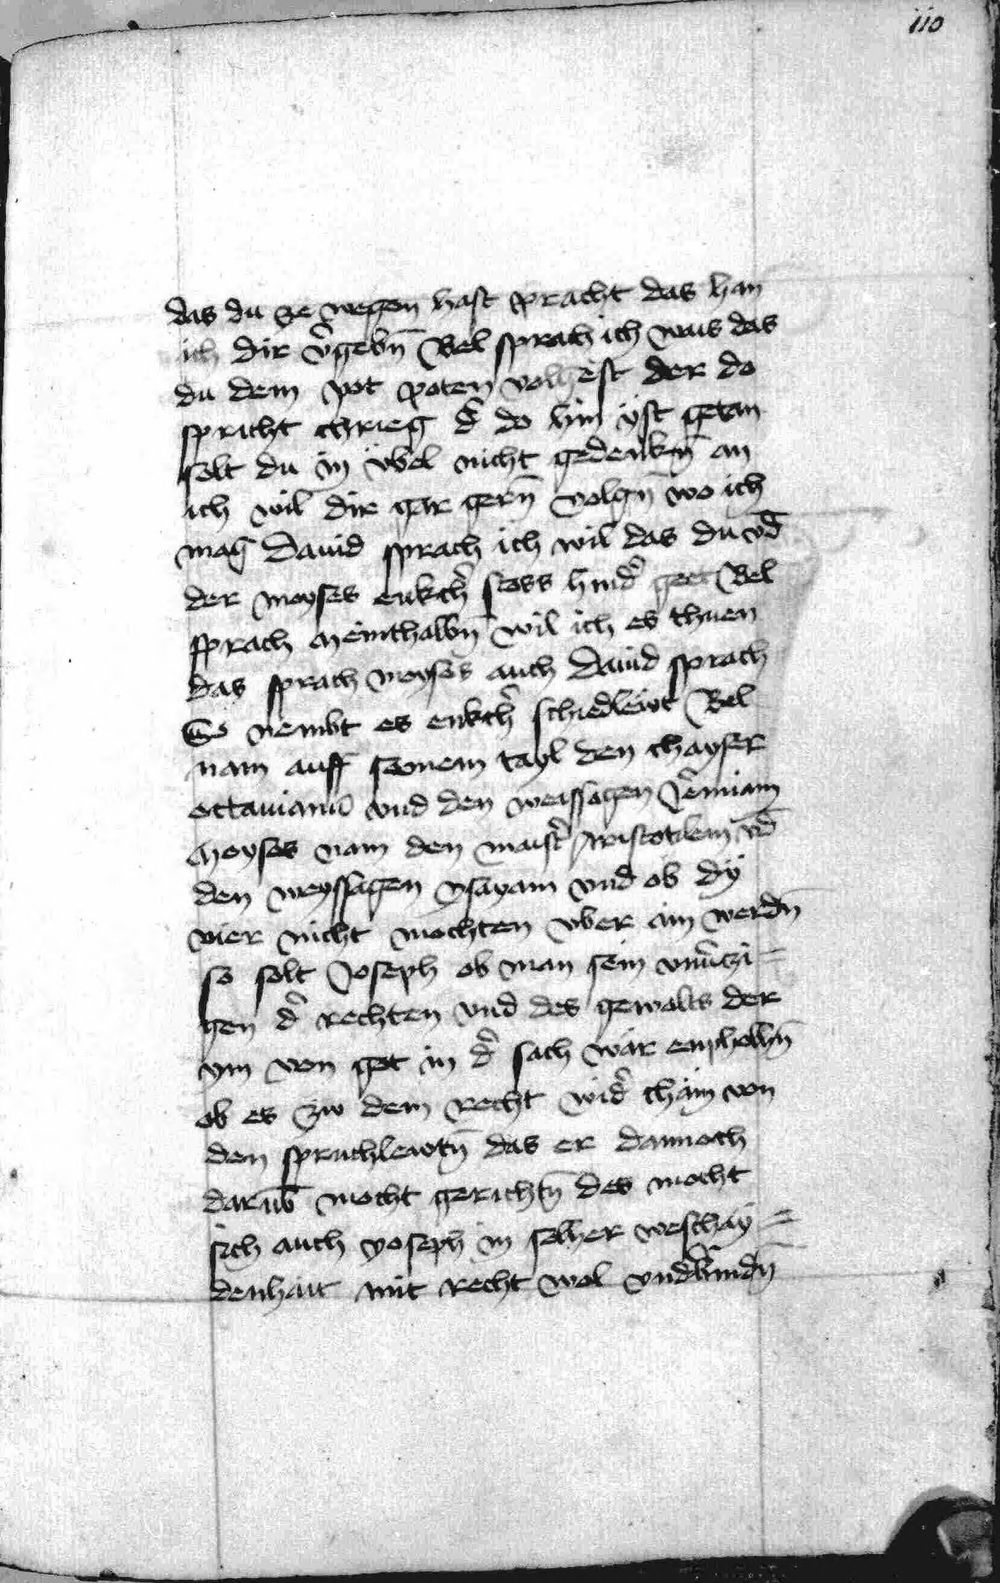 110
das du ze wegen hast pracht das han
ich dir v̄gebn̄ Bel sprach ich wais das
du dem pot poten volgest der do
spricht chrieg d̄ do hin ÿst getan
solt du in v̈bel nicht gedenkn̄ an
ich wil dir gar gern̄ volgn̄ wo ich
mag Dauid sprach ich wil das du vd̄
der moyses enkch̄ stoss hind̄ geet Bel
sprach Meinthalbn̄ wil ich es thuen
das sprach moyses auch Dauid sprach
So nembt es enkch̄ schiedlewt Bel
nam auff seinem tayl den chayser
octauianū vnd den weissagen Jēmiam
Moyses nam den maist̄ Aristotilem vd̄
den weyssagen ysayam vnd ob dÿ
vier nicht mochten vber ain werdn̄
so solt Joseph ob man sein
gen d̄ rechten vnd des gewalts der
ym von got in d̄ sach wär enpholhn̄
ob es zw dem recht wid̄ chäm von
den spruchlewtn̄ das er dannoch
darub̄ mocht gerichtn̄ des mocht
sich auch yoseph in solher weschay=
denhait mit recht wol vnd̄windn̄